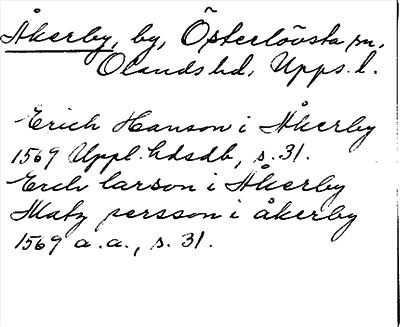 Åkerby, by, Österlövsta sn,
Olands hd, Upps. l.
Erich Hanson i Åkerby
1569 Uppl. hdsdb, s. 31.
Erich larson i Åkerby
Matz persson i åkerby
1569 a.a., s. 31.